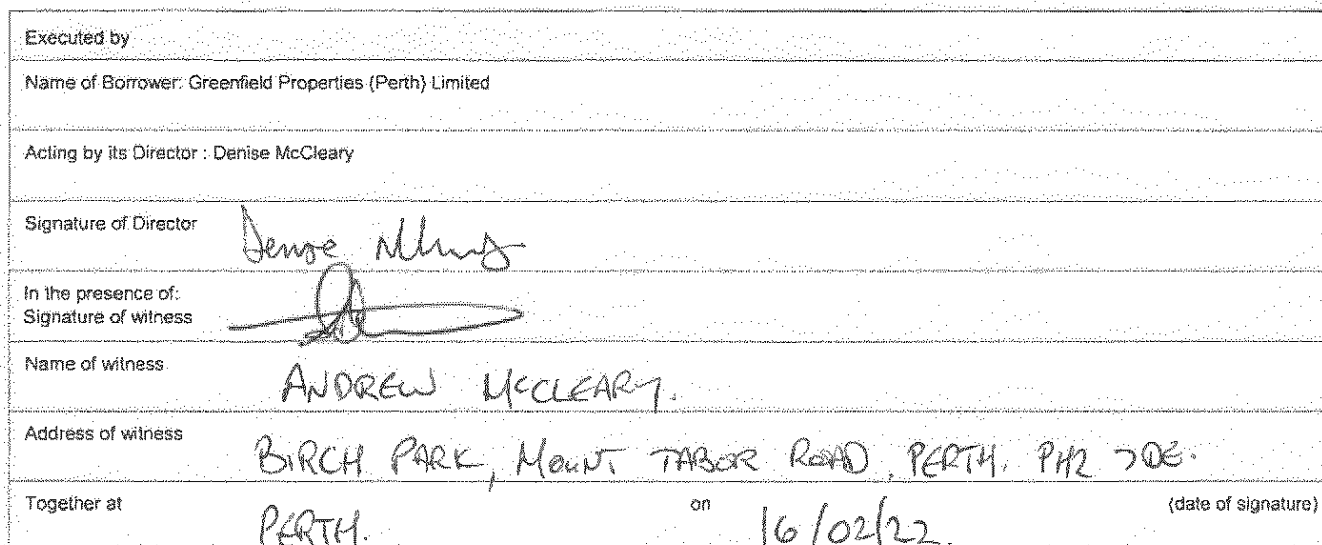 Executed by
Name of Borrower: Greenfield Properties (Perth) Limited
Acting by its Director : Denise McCleary
Signature of Director Denise
In the presence of:
Signature of witness
Name of witness ANDREW MCCLEARY.
Address of witness BIRCH PARK, MOUNT TABOR ROAD, PERTH. PH2 7DE.
Together at PERTH. on 16/02/22. (date of signature)